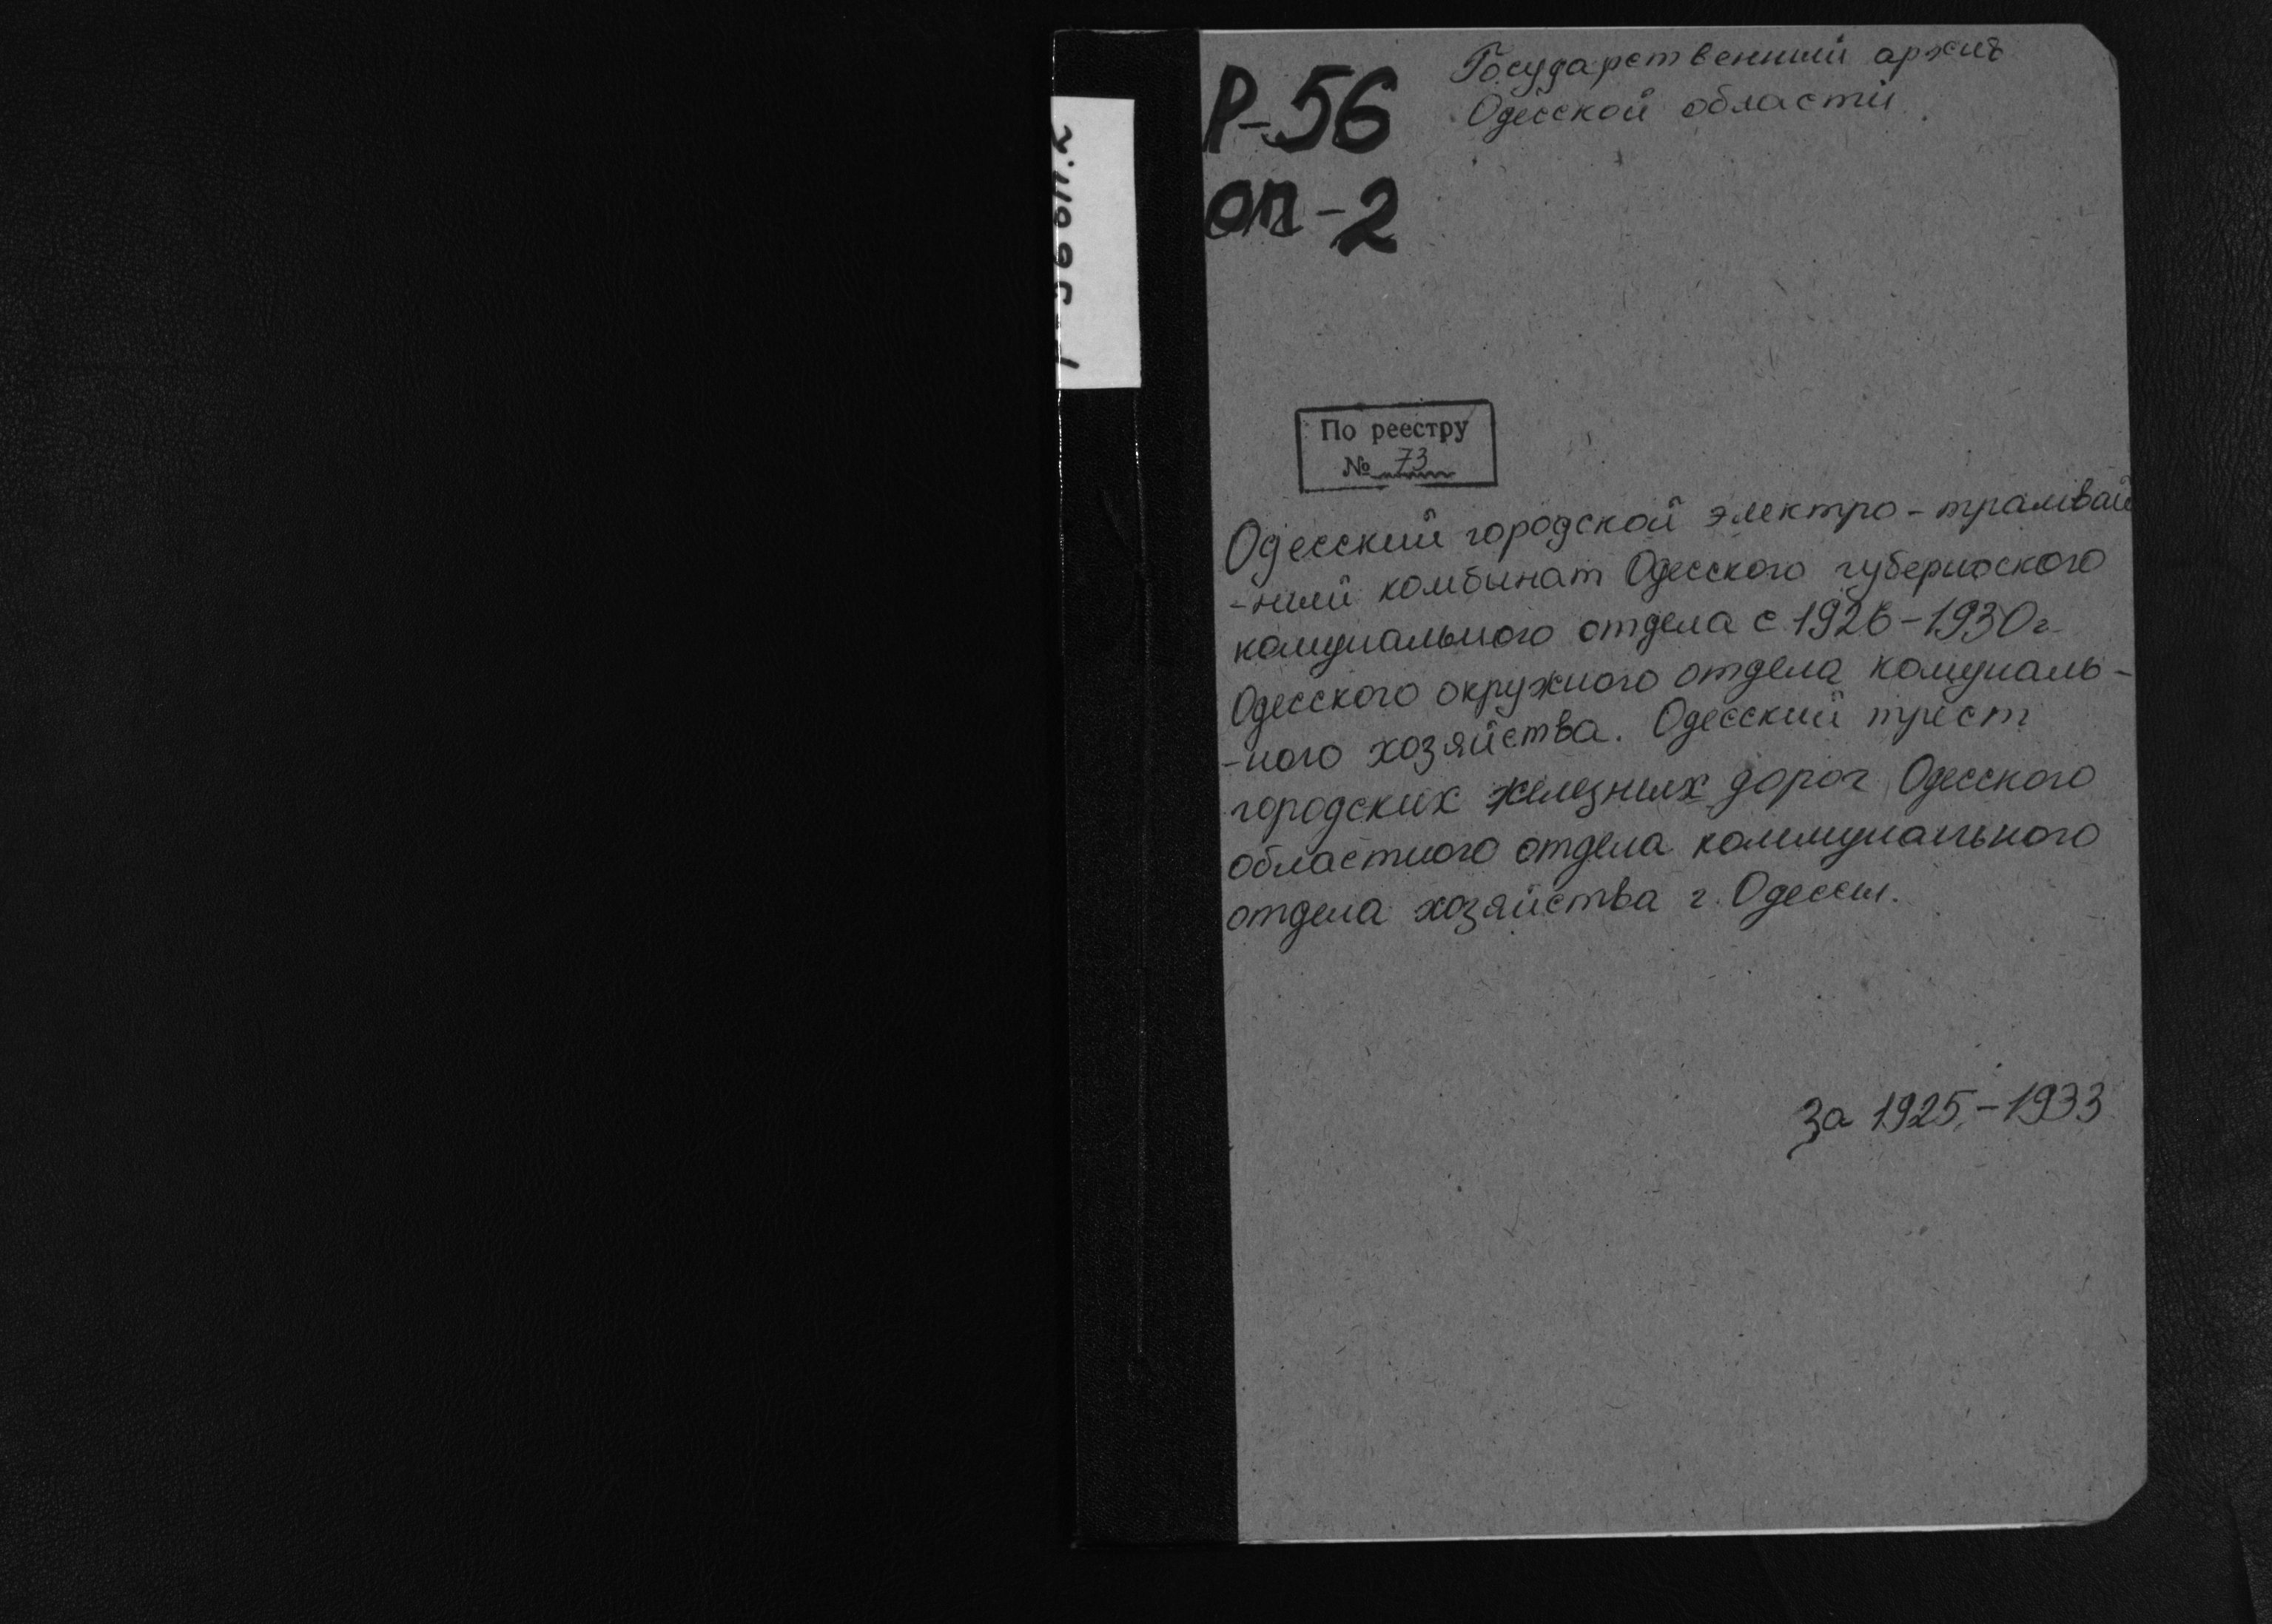 Государственний архив
Одесской области
Р-56
оп-2
По реестру
№ 73
Одесский городской электро-трамвай
-ний комбинат Одесского губернского
комунального отдела с 1926-1930г.
Одесского окружного отдела комуналь-
-ного хозяйства. Одесский трест
городских железних дорог Одесского
областного отдела коммунального
отдела хозяйства г. Одесси.
за 1925-1933